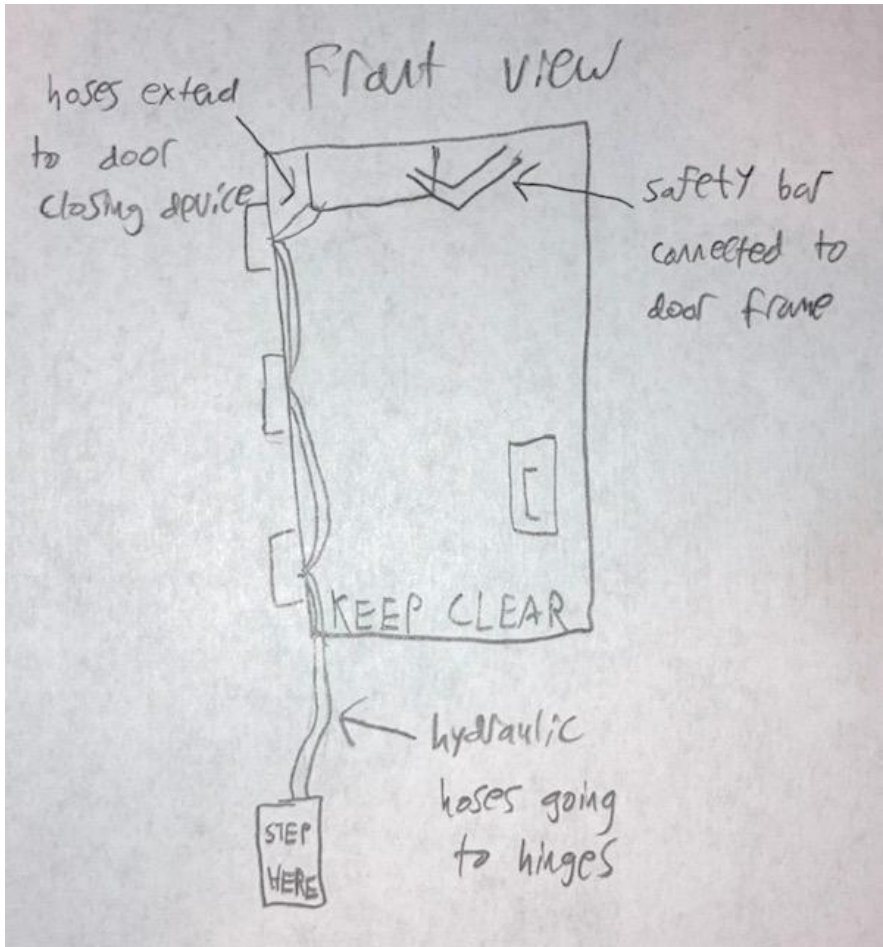 Front view
hoses extend
to door
closing device
safety bar
connected to
door frame
KEEP CLEAR
hydraulic
hoses going
to hinges
STEP
HERE